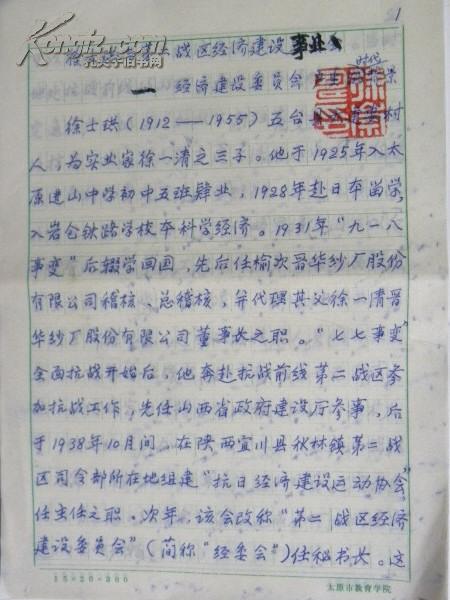 1
战区经济建设事业
一 经济建设委员会产生的时代背景
徐士珙(1912——1955)五台县 村
人,为实业家徐一清之三子。他于1925年入太
原进山中学初中五班肄业,1928年赴日本留学,
入岩仓铁路学校本科学经济。1931年“九一八
事变”后辍学回国,先后任榆次晋华纱厂股份
有限公司稽核、总稽核,并代理其父徐一清晋
华纱厂股份有限公司董事长之职。“七七事变”
全面抗战开始后,他奔赴抗战前线第二战区参
加抗战工作,先任山西省政府建设厅参事,后
于1938年10月间,在陕西宜川县秋林镇第二战
区司令部所在地组建“抗日经济建设运动协会”
任主任之职。次年,该会改称“第二战区经济
建设委员会”(简称“经委会”)任秘书长。这
15×20=300
太原市教育学院